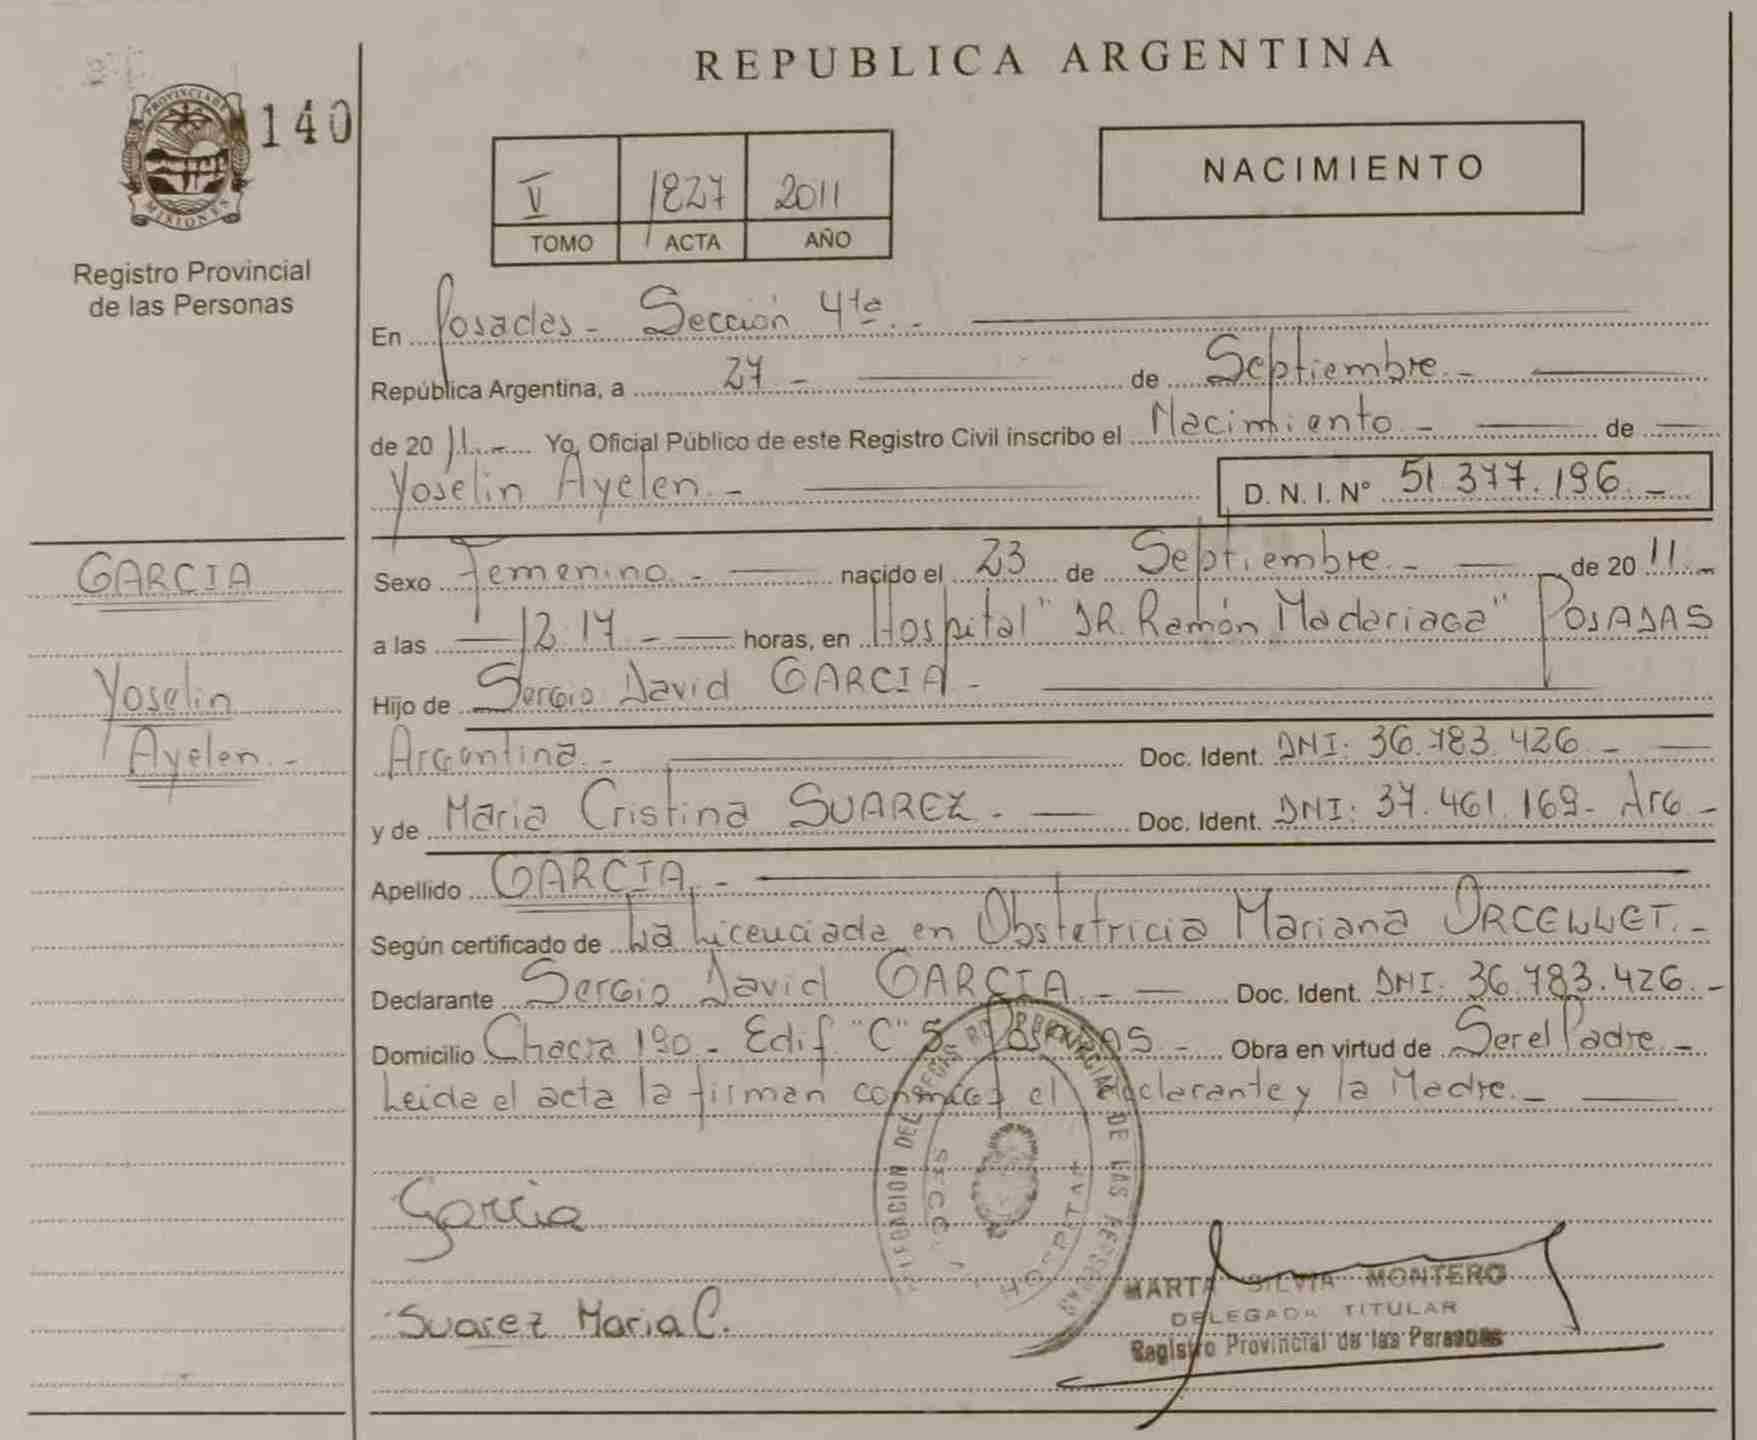 REPUBLICA ARGENTINA
PROVINCIA DE
MISIONES
140
Registro Provincial
de las Personas
V 1827 2011
TOMO ACTA AÑO
NACIMIENTO
En Posadas - Sección 4ta. -
República Argentina, a 27 - de Septiembre. -
de 20 11. - Yo, Oficial Público de este Registro Civil inscribo el Nacimiento - de
Yoselin Ayelen. - D. N. I. Nº 51.377.196. -
GARCIA
Yoselin
Ayelen. -
Sexo Femenino. - nacido el 23 de Septiembre. - de 20 11. -
a las 12.17 - horas, en Hospital "DR. Ramón Madariaga" POSADAS
Hijo de Sergio David GARCIA -
Argentina. - Doc. Ident. DNI: 36.783.426. -
y de Maria Cristina SUAREZ. - Doc. Ident. DNI: 37.461.169- Arg -
Apellido GARCIA. -
Según certificado de La Licenciada en Obstetricia Mariana ORCELLET. -
Declarante Sergio David GARCIA. - Doc. Ident. DNI: 36.783.426. -
Domicilio Chacra 190 - Edif "C" POSADAS - Obra en virtud de Ser el Padre -
Leida el acta la firman conmigo el declarante y la Madre. -
DELEGACION DEL REGISTRO PROVINCIAL DE LAS PERSONAS
HOSPITAL
Garcia
Suarez Maria C.
MARTA SILVIA MONTERO
DELEGADA TITULAR
Registro Provincial de las Personas